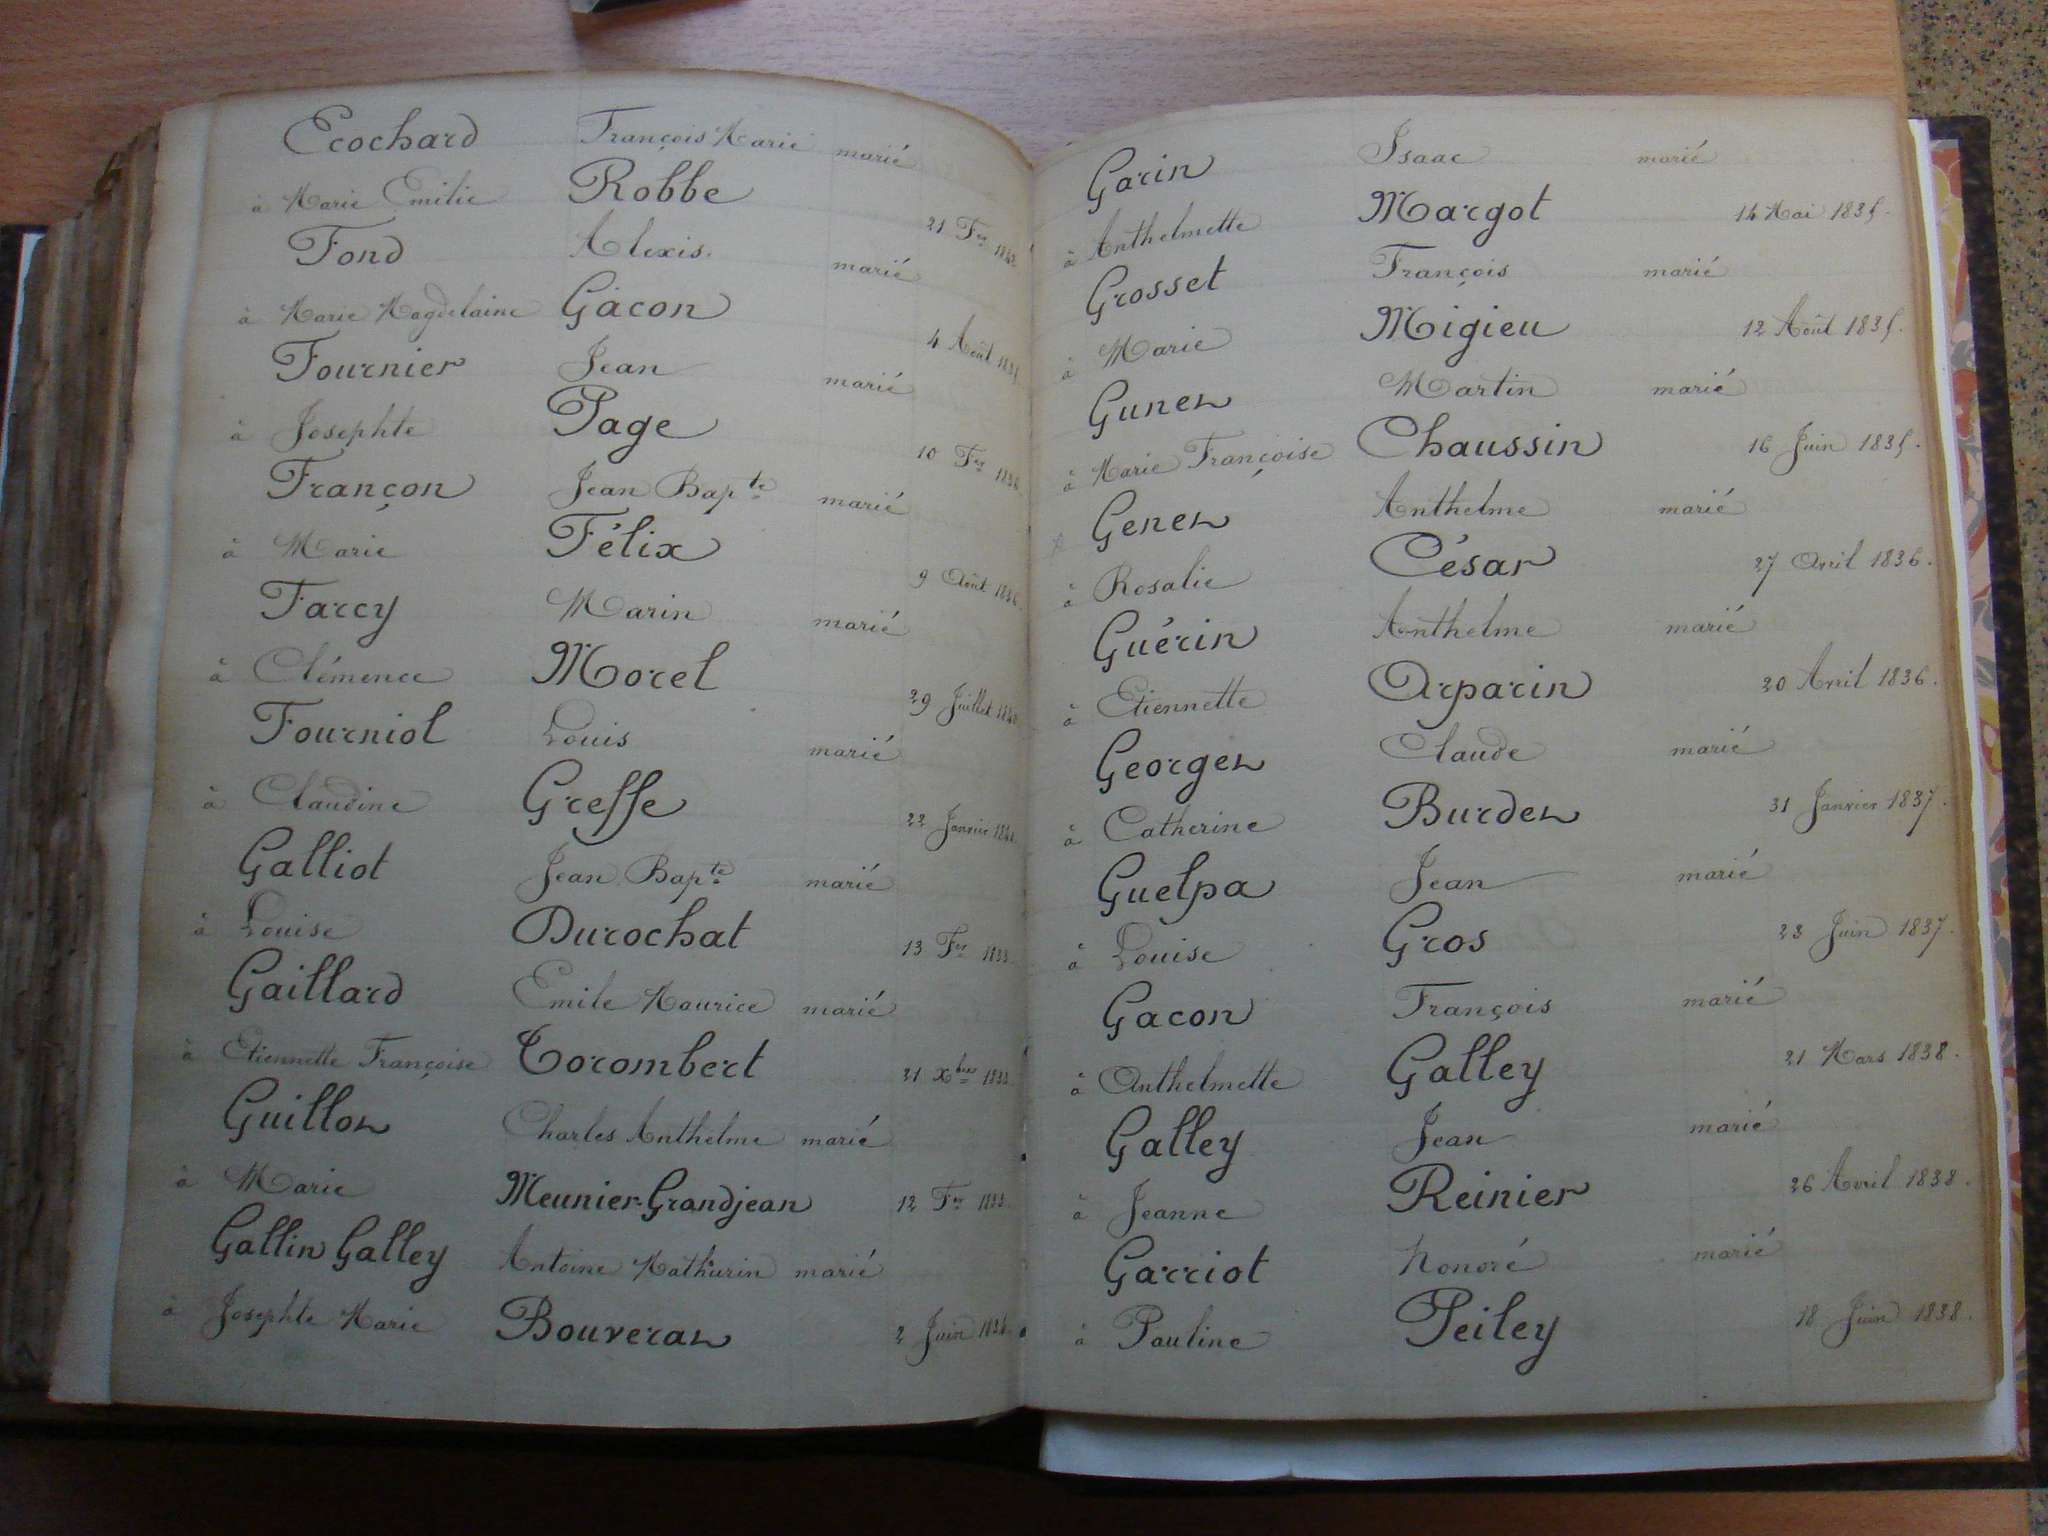 Ecochard François Marie marié
à Marie Emilie Robbe 21 Fer
Fond Alexis marié
à Marie Magdelaine Gacon 4 Août 1835
Fournier Jean marié
à Josephte Page 10 Fer 1836
Françon Jean Bapte marié
à Marie Félix 9 Août 1836
Farcy Marin marié
à Clémence Morel 29 Juillet
Fourniol Louis marié
à Claudine Greffe 22 Janvier
Galliot Jean Bapte marié
à Louise Durochat 13 Fer 1833
Gaillard Emile Maurice marié
à Etiennette Françoise Torombert 21 Xbre 1833
Guillon Charles Anthelme marié
à Marie Meunier-Grandjean 12 Fer 1833
Gallin Galley Antoine Mathurin marié
à Josephte Marie Bouveran 2 Juin
Garin Isaac marié
à Anthelmette Margot 14 Mai 1835.
Grosset François marié
à Marie Migieu 12 Août 1835.
Gunen Martin marié
à Marie Françoise Chaussin 16 Juin 1835.
Genen Anthelme marié
à Rosalie César 27 Avril 1836.
Guérin Anthelme marié
à Etiennette Arparin 20 Avril 1836.
Georgen Claude marié
à Catherine Burden 31 Janvier 1837.
Guelpa Jean marié
à Louise Gros 23 Juin 1837.
Gacon François marié
à Anthelmette Galley 21 Mars 1838.
Galley Jean marié
à Jeanne Reinier 26 Avril 1838.
Garriot Honoré marié
à Pauline Peiley 18 Juin 1838.